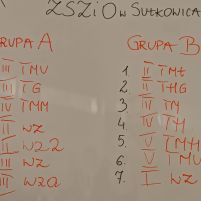 ZSZiO w SUŁKOWICA
RUPA A
III TMV
III TG
IV TMM
II WZ
II WZ2
III WZ
III WZa
GRUPA B
1. II TMt
2. II THG
3. IV TM
4. IV TH
5. I TMH
6. V TMV
7. I WZ